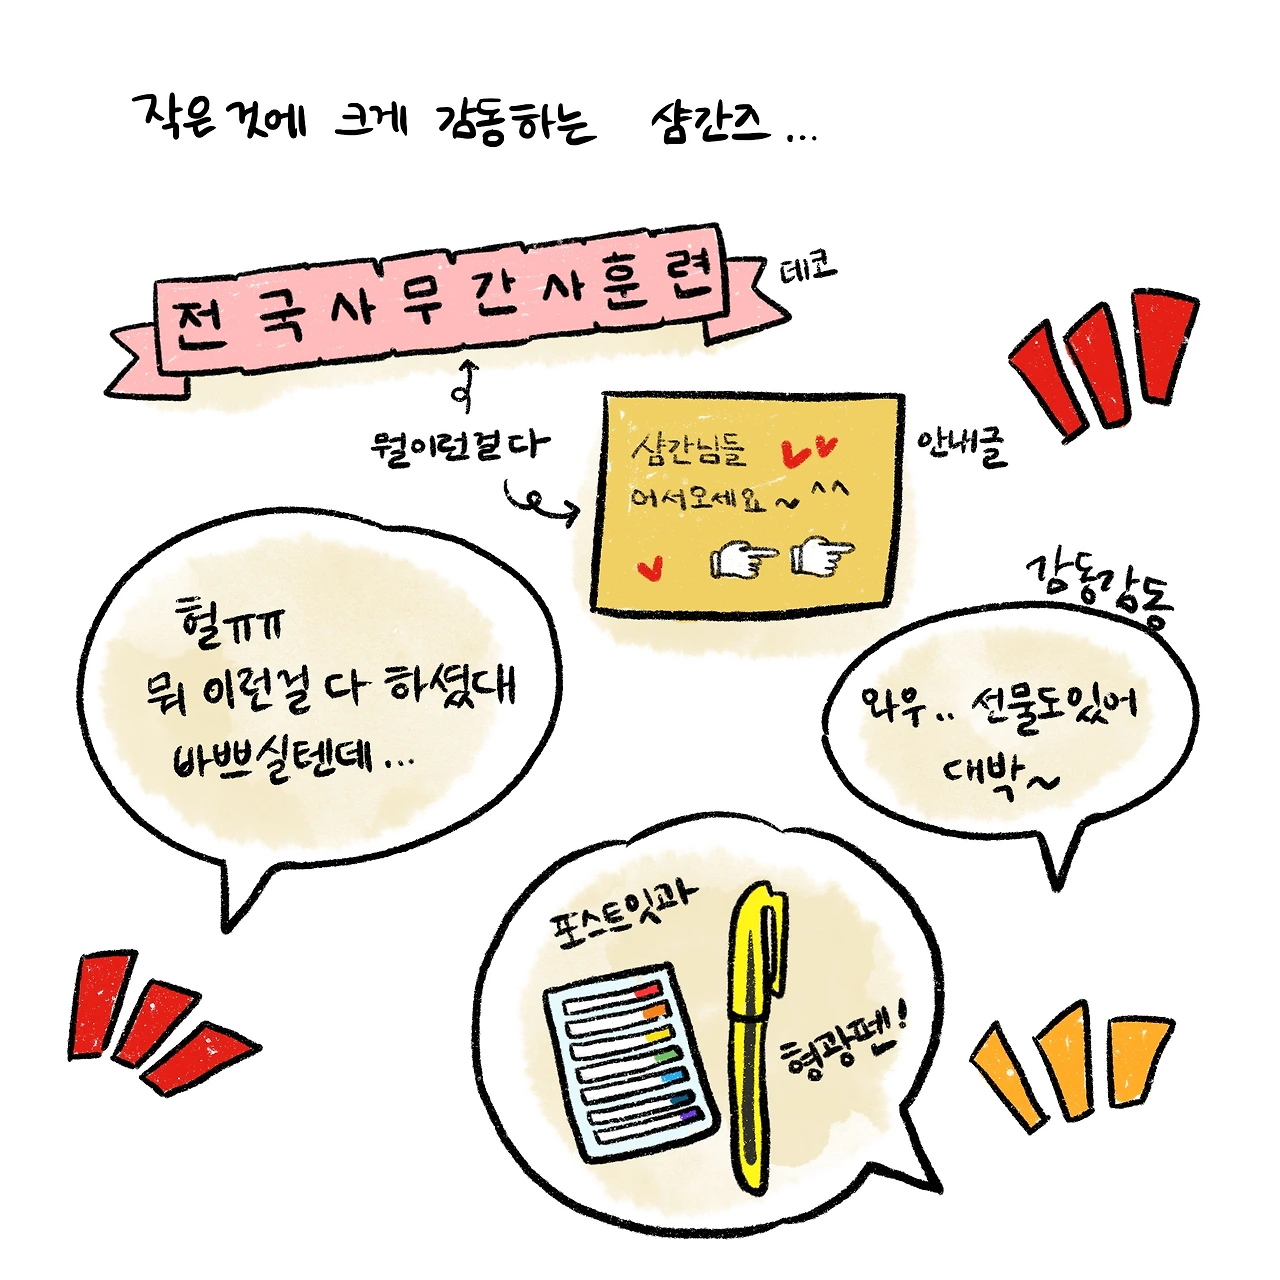 작은 것에 크게 감동하는 샴간즈...
전국사무간사훈련
데코
뭘이런걸다
샴간님들
어서오세요~^^
안내글
헐ㅠㅠ
뭐 이런걸 다 하셨대
바쁘실텐데...
감동감동
와우.. 선물도있어
대박~
포스트잇과
형광펜!